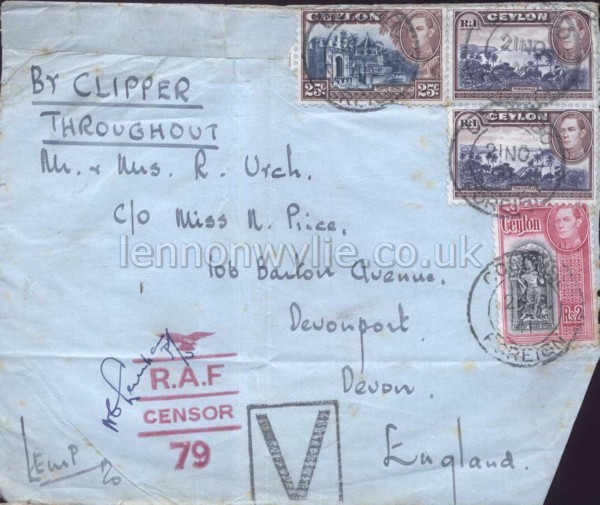 CEYLON
25c 25c
CEYLON
Re.1
21 NO
CEYLON
Re.1
21 NO
FOREIGN
Ceylon
Rs2
FOREIGN
By CLIPPER
THROUGHOUT
Mr. & Mrs. R. Urch.
C/o Miss N. Price.
lennonwylie.co.uk
106 Barton Avenue.
Devonport.
Devon.
England.
R.A.F
CENSOR
79
V